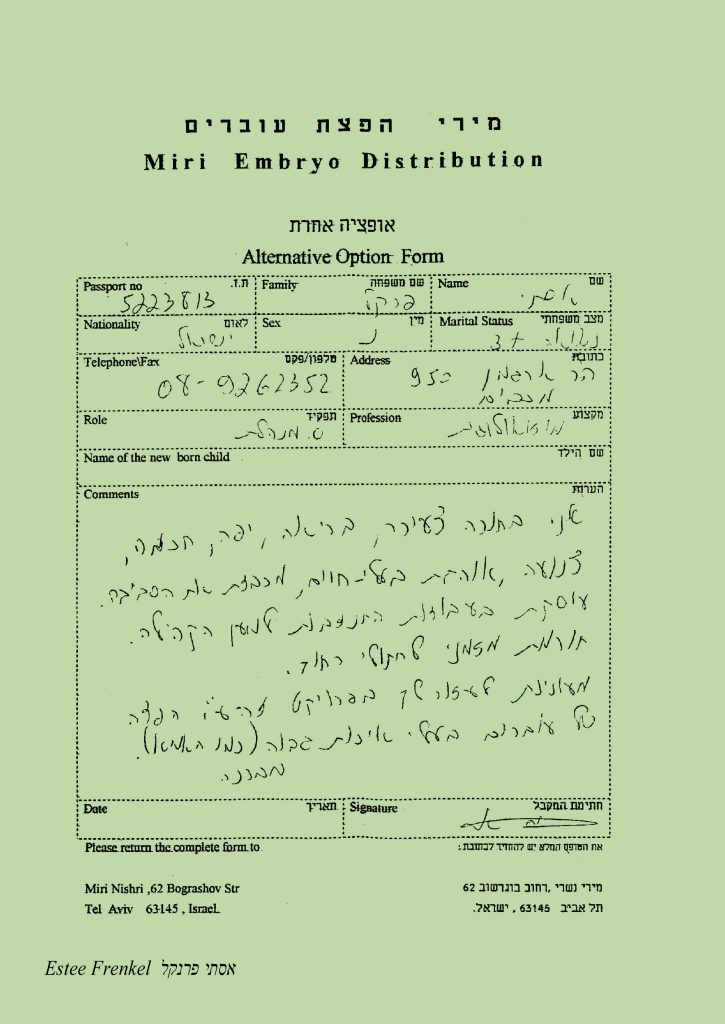 מירי הפצת עוברים
Miri Embryo Distribution
אופציה אחרת
Alternative Option Form
Passport no ת.ז. Family שם משפחה Name שם
5223813 אסתי
Nationality לאום Sex מין Marital Status מצב משפחתי
ישראל נ נשואה +3
Telephone\Fax טלפון/פקס Address כתובת
08-9262352 הר ארגמן 950
מכבים
Role תפקיד Profession מקצוע
ס. מנהלת
Name of the new born child שם הילד
Comments הערות
אני בחורה צעירה, בריאה, יפה, חכמה,
צנועה, אוהבת בעלי-חיים, מכבדת את הסביבה.
עוסקת בעבודות התנדבות למען הקהילה.
תורמת מזמני לחתולי רחוב.
מעונינת לעזור לך בפרויקט הפצה
של עוברים בעלי איכות גבוה (כמו האמא).
מברכה.
Date תאריך Signature חתימת המקבל
Please return the complete form to את הטופס המלא יש להחזיר לכתובת:
Miri Nishri ,62 Bograshov Str מירי נשרי ,רחוב בוגרשוב 62
Tel Aviv 63145 , Israel. תל אביב 63145 , ישראל.
Estee Frenkel אסתי פרנקל